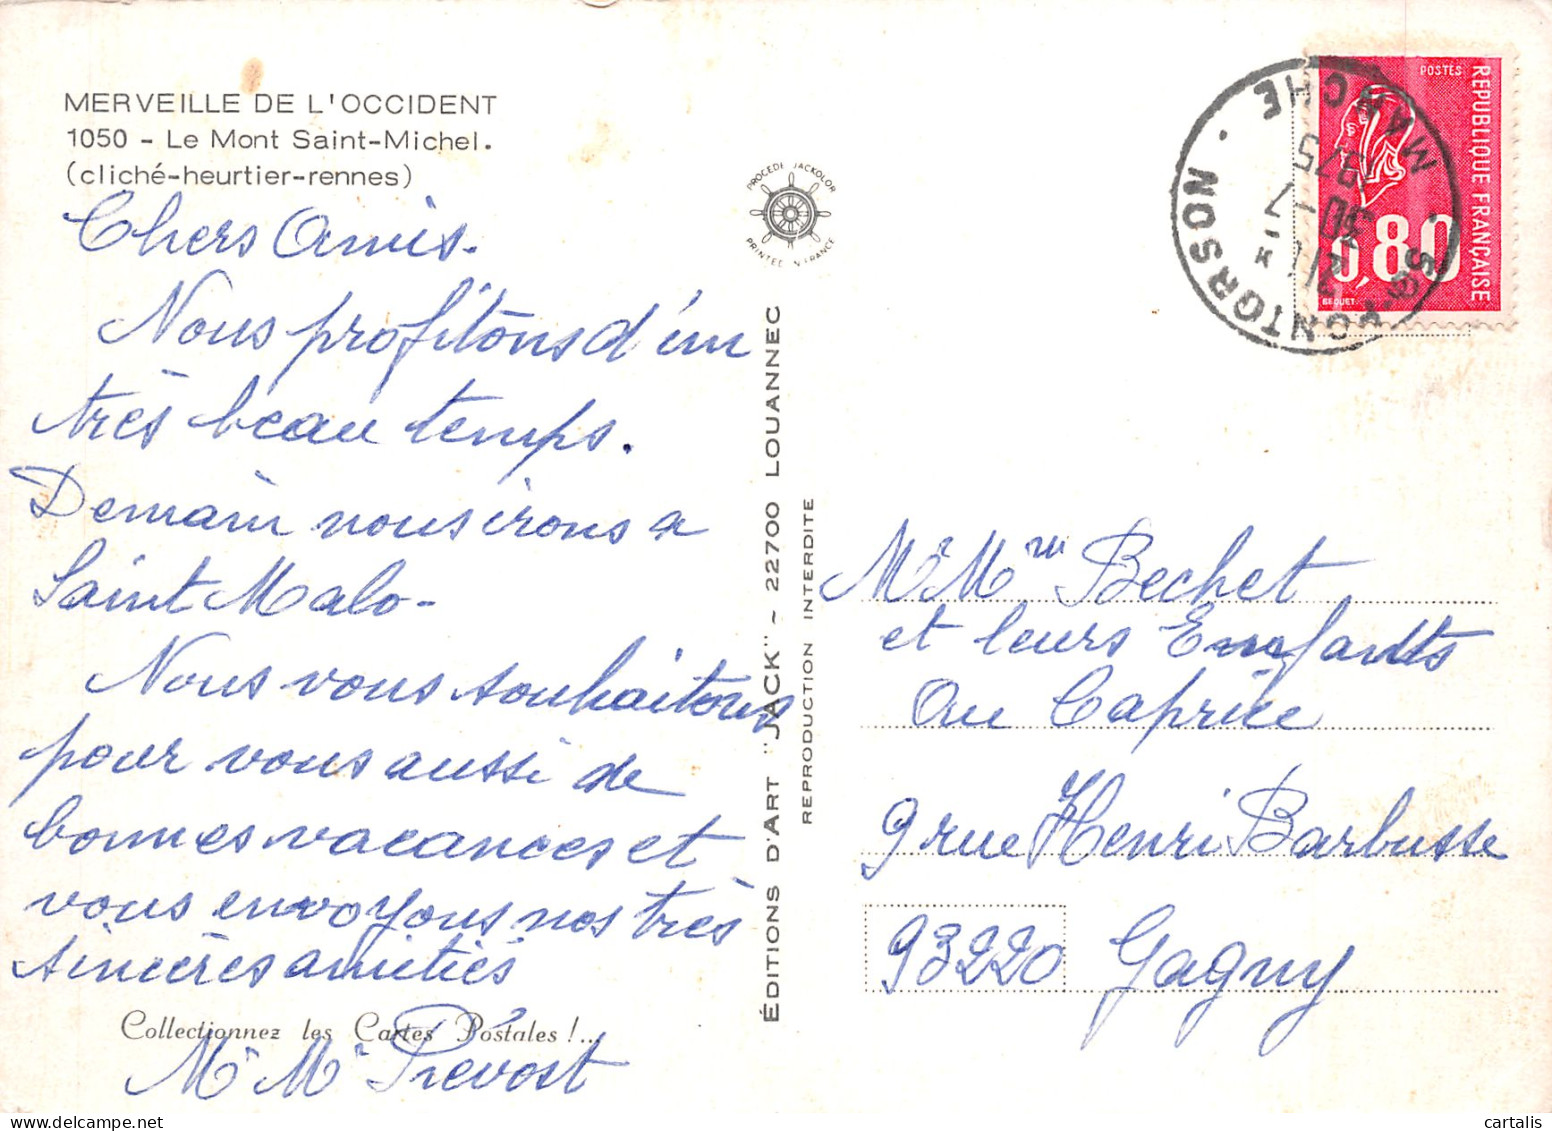 MERVEILLE DE L'OCCIDENT
1050 - Le Mont Saint-Michel.
(cliché-heurtier-rennes)
Chers Amis.
Nous profitons d'un
très beau temps.
Demain nous irons a
Saint Malo-
Nous vous souhaitons
pour vous aussi de
bonnes vacances et
vous envoyons nos très
sincères amitiés
Collectionnez les Cartes Postales !...
Mr Mme Prévost
PROCEDE JACKOLOR
PRINTED IN FRANCE
ÉDITIONS D'ART "JACK" ~ 22700 LOUANNEC
REPRODUCTION INTERDITE
PONTORSON
MANCHE
30-7
1975
POSTES
REPUBLIQUE FRANÇAISE
0,80
BEQUET
Mr Mme Bechet
et leurs Enfants
Au Caprice
9 rue Henri Barbusse
93220 Gagny
© cartalis